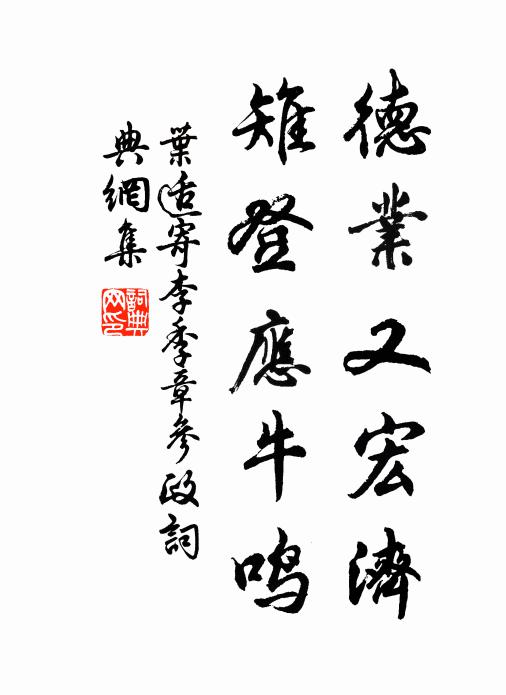 德業又宏濟
雉登應牛鳴
葉適寄李季章參政詞
典網集
詞典網印